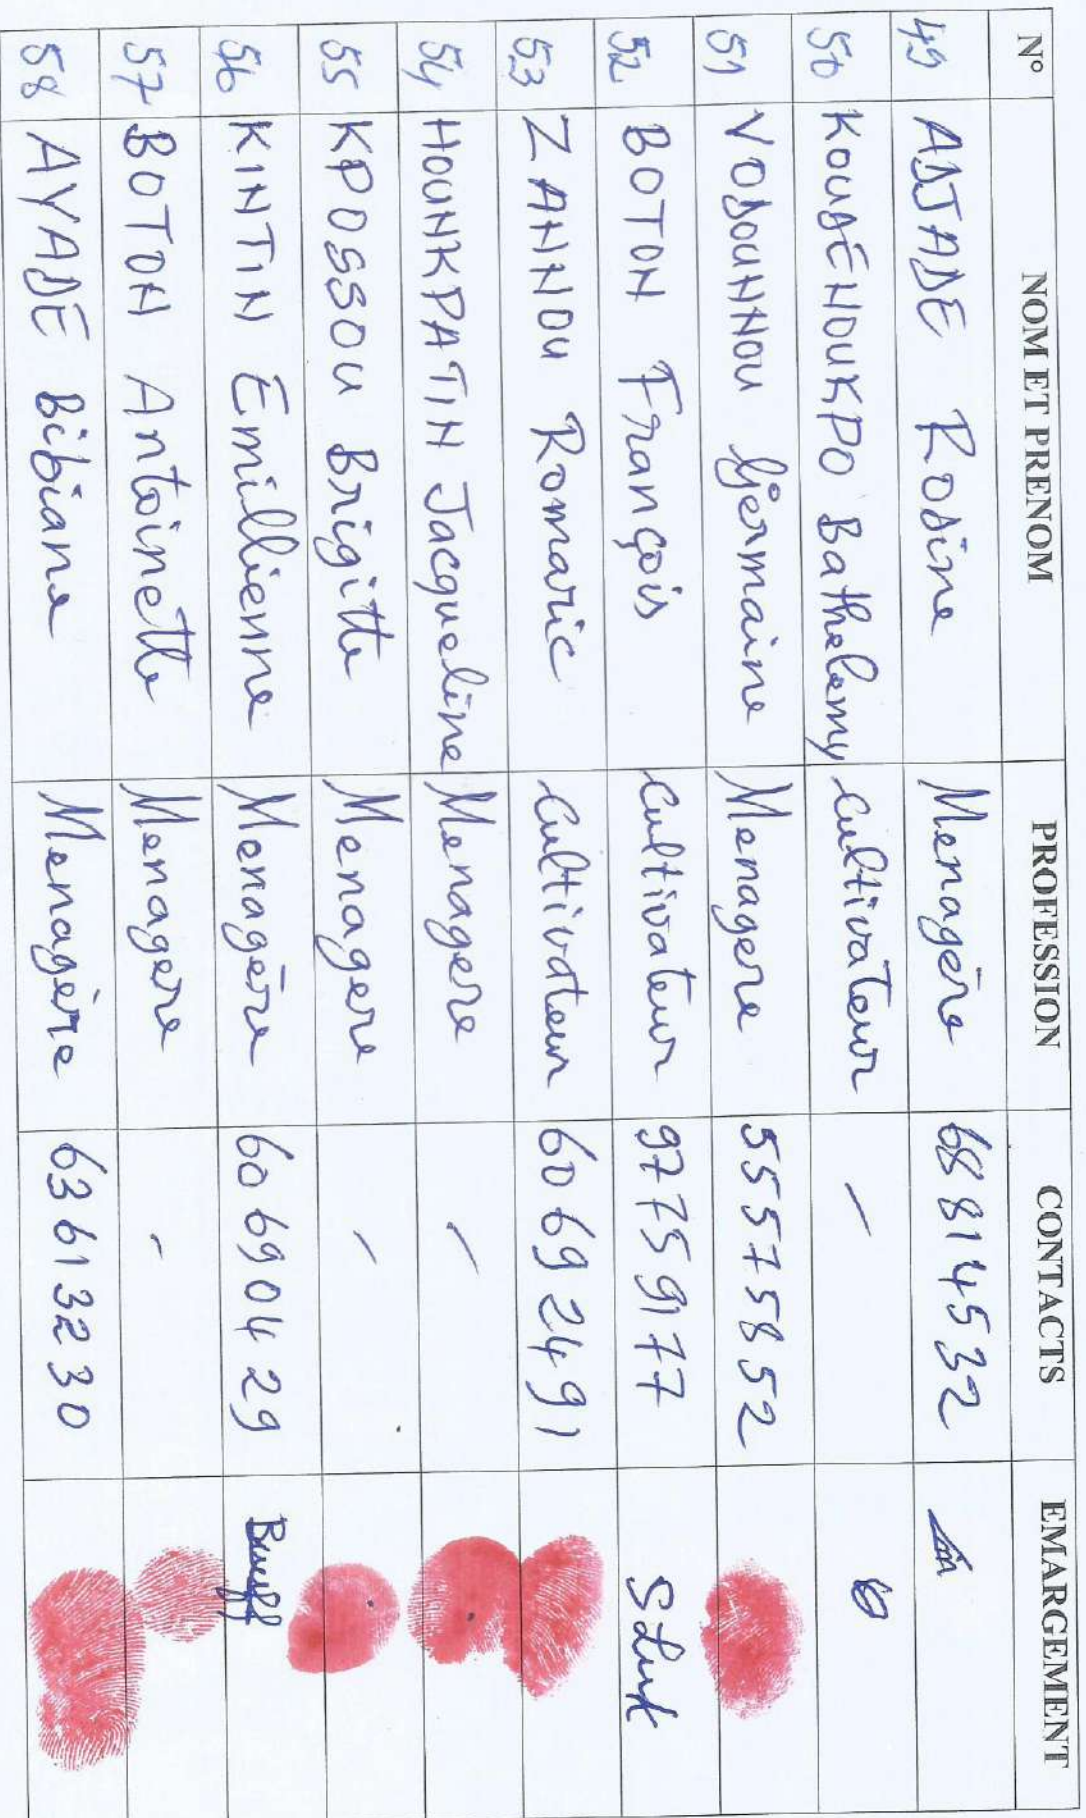 N° NOM ET PRENOM PROFESSION CONTACTS EMARGEMENT
49 ADJADE Rodine Menagère 68814532
50 KOUDÉNOUKPO Bathelemy Cultivateur –
51 VODOUNNOU Germaine Menagere 55575852
52 BOTON François Cultivateur 97759177
53 ZANNOU Romaric Cultivateur 60692491
54 HOUNKPATIN Jacqueline Menagere –
55 KPOSSOU Brigitte Menagere –
56 KINTIN Emillienne Menagère 60690429
57 BOTON Antoinette Menagere -
58 AYADÉ Bibiane Menagère 63613230